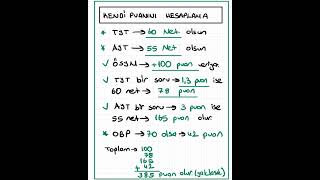 KENDİ PUANINI HESAPLAMA
* TYT → 60 Net olsun
* AYT → 55 Net olsun
✓ ÖSYM → +100 puan veriyor.
✓ TYT bir soru → 1,3 puan ise
60 net → 78 puan
✓ AYT bir soru → 3 puan ise
55 net → 165 puan olur.
* OBP → 70 olsa → 42 puan
Toplam → 100
78
165
+ 42
385 puan olur (yaklaşık)